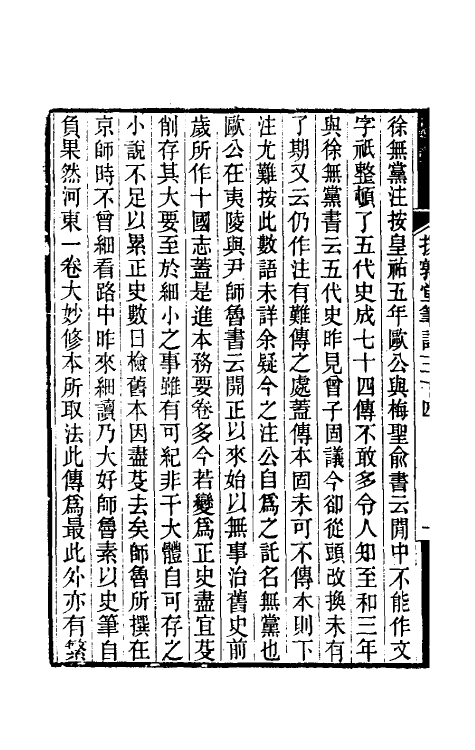 徐無黨注按皇祐五年歐公與梅聖俞書云閒中不能作文
字祇整頓了五代史成七十四傳不敢多令人知至和三年
與徐無黨書云五代史昨見曾子固議今卻從頭改換未有
了期又云仍作注有難傳之處蓋傳本固未可不傳本則下
注尤難按此數語未詳余疑今之注公自爲之託名無黨也
歐公在夷陵與尹師魯書云開正以來始以無事治舊史前
歲所作十國志蓋是進本務要卷多今若變爲正史盡宜芟
削存其大要至於細小之事雖有可紀非干大體自可存之
小說不足以累正史數日檢舊本因盡芟去矣師魯所撰在
京師時不曾細看路中昨來細讀乃大好師魯素以史筆自
負果然河東一卷大妙修本所取法此傳爲最此外亦有繁
援鶉堂筆記三十四
一